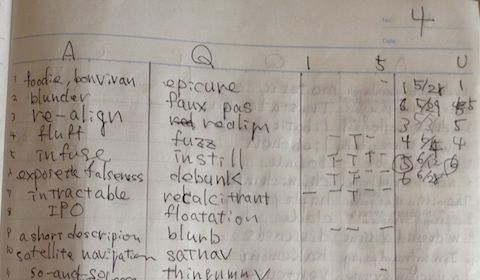 No. 4
Date
A Q 1 5 U
1 foodie, bonvivan epicure 1 5/28 1
2 blunder faux pas 5/29
3 re-align realign 3 5
4 fluff fuzz 4 4
5 infuse instill
6 expose falseness debunk 6
7 intractable recalcitrant
8 IPO floatation
9 a short descripion blurb
10 satellite navigation satnav
so-and-so thingummy